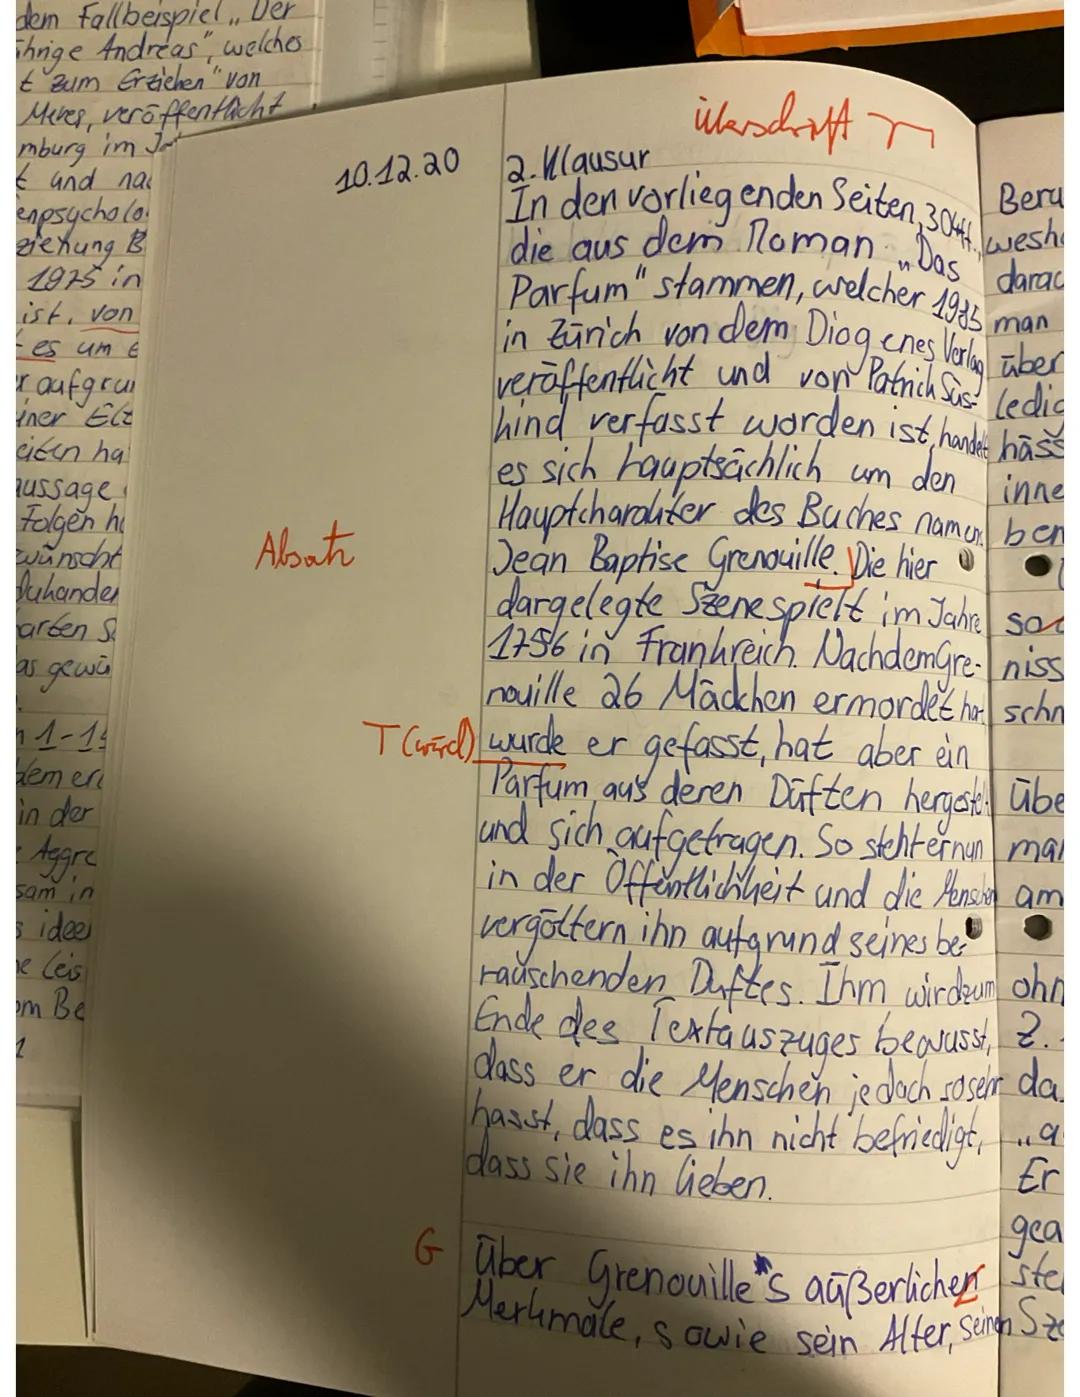 dem Fallbeispiel „Der
ährige Andreas", welches
t zum Erziehen" von
Meves, veröffentlicht
mburg im
t und nac
enpsycholo
ziehung B
1975 in
ist, von
es um E
r aufgru
iner Elt
eiten ha
aussage
Folgen h
wünscht
arten S
as gewü
n 1-15
dem er
in der
Aggre
sam in
s idee
he Leis
om Be
Überschrift Γ
10.12.20
2. Klausur
In den vorliegenden Seiten, 304ff.,
die aus dem Roman „Das
Parfum" stammen, welcher 1985
in Zürich von dem Diogenes Verlag
veröffentlicht und von Patrick Süs-
kind verfasst worden ist, handelt
es sich hauptsächlich um den
Hauptcharakter des Buches namens
Absatz
Jean Baptise Grenouille. Die hier
dargelegte Szene spielt im Jahre
1756 in Frankreich. Nachdem Gre-
nouille 26 Mädchen ermordet hat
T (wird) wurde er gefasst, hat aber ein
Parfum aus deren Düften hergestellt
und sich aufgetragen. So steht er nun
in der Öffentlichkeit und die Menschen
vergöttern ihn aufgrund seines be-
rauschenden Duftes. Ihm wird zum
Ende des Textauszuges bewusst,
dass er die Menschen jedoch so sehr
hasst, dass es ihn nicht befriedigt,
dass sie ihn lieben.
G Über Grenouille's äußerlichen
Merkmale, sowie sein Alter, seinen
Beru
wesh
darau
man
über
ledig
häss
inne
ben
so
niss
schn
übe
man
am
ohn
Z.
da
„a
Er
gea
ste
Sze